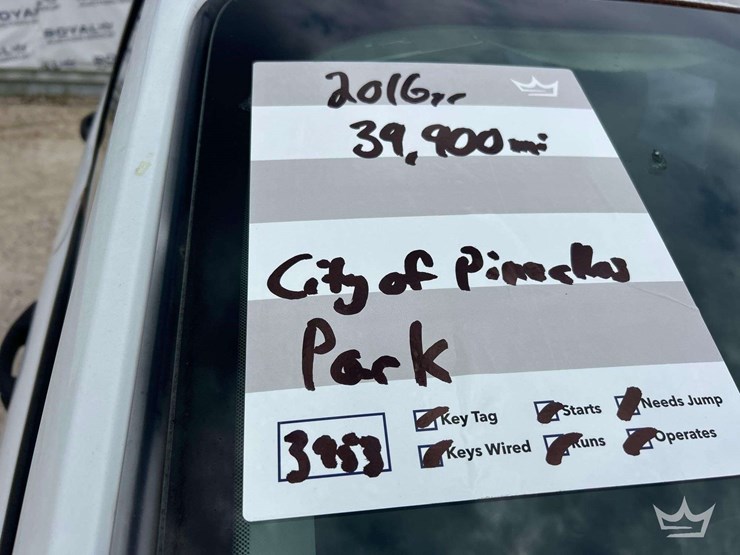 ROYAL
2016yr
39,900mi
City of Pinnecllas
Park
3953
Key Tag
Starts
Needs Jump
Keys Wired
Runs
Operates